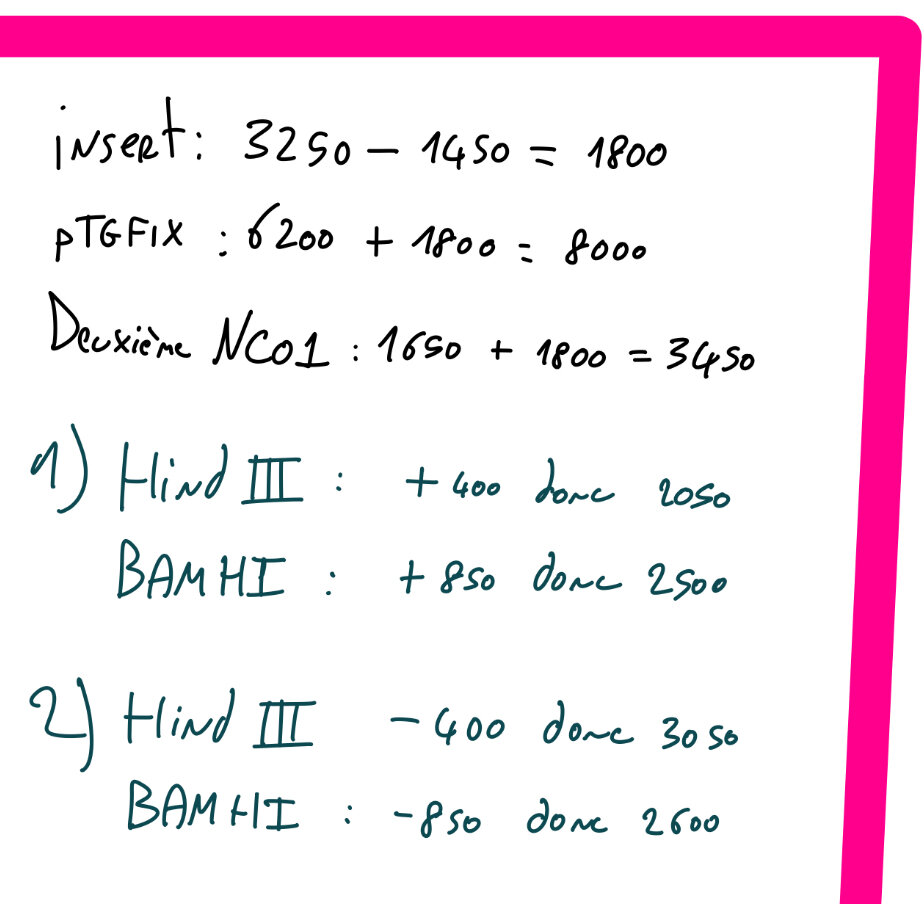 insert: 3250 - 1450 = 1800
pTGFIX : 6200 + 1800 = 8000
Deuxième NCO1 : 1650 + 1800 = 3450
1) Hind III : + 400 donc 2050
BAMHI : + 850 donc 2500
2) Hind III - 400 donc 3050
BAMHI : - 850 donc 2600